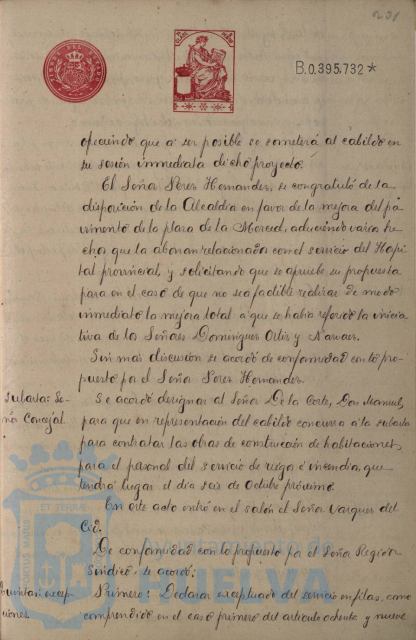 231
B.0.395.732*
ofreciendo que a ser posible se someterá al cabildo en
su sesión inmediata dicho proyecto.
El Señor Perez Hernandez, se congratuló de la
disposición de la Alcaldia en favor de la mejora del pa-
vimento de la plaza de la Merced, aduciendo varios he-
chos que la abonan relacionada con el servicio del Hospi-
tal provincial, y solicitando que se apruebe su propuesta
para en el caso de que no sea factible realizar de modo
inmediato la mejora total a que se habia referido la inicia-
tiva de los Señores Dominguez Ortiz y Narvaez.
Sin mas discusión se acordó de conformidad con lo pro-
puesto por el Señor Perez Hernandez.
Subasta: Se-
ñor Concejal.
Se acordó designar al Señor De la Corte, Don Manuel,
para que en representación del cabildo concurra a la subasta
para contratar las obras de construcción de habitaciones
para el personal del servicio de riego é incendio, que
tendrá lugar el dia seis de Octubre próximo.
En este acto entró en el salón el Señor Vazquez del
Cid.
De conformidad con lo propuesto por el Señor Regidor
Sindico se acordó:
Quintas: excep-
ciones.
Primero: Declarar exceptuado del servicio en filas, como
comprendido en el caso primero del articulo ochenta y nueve
PORTUS MARIS
ET TERRAE
Ayuntamiento de
HUELVA